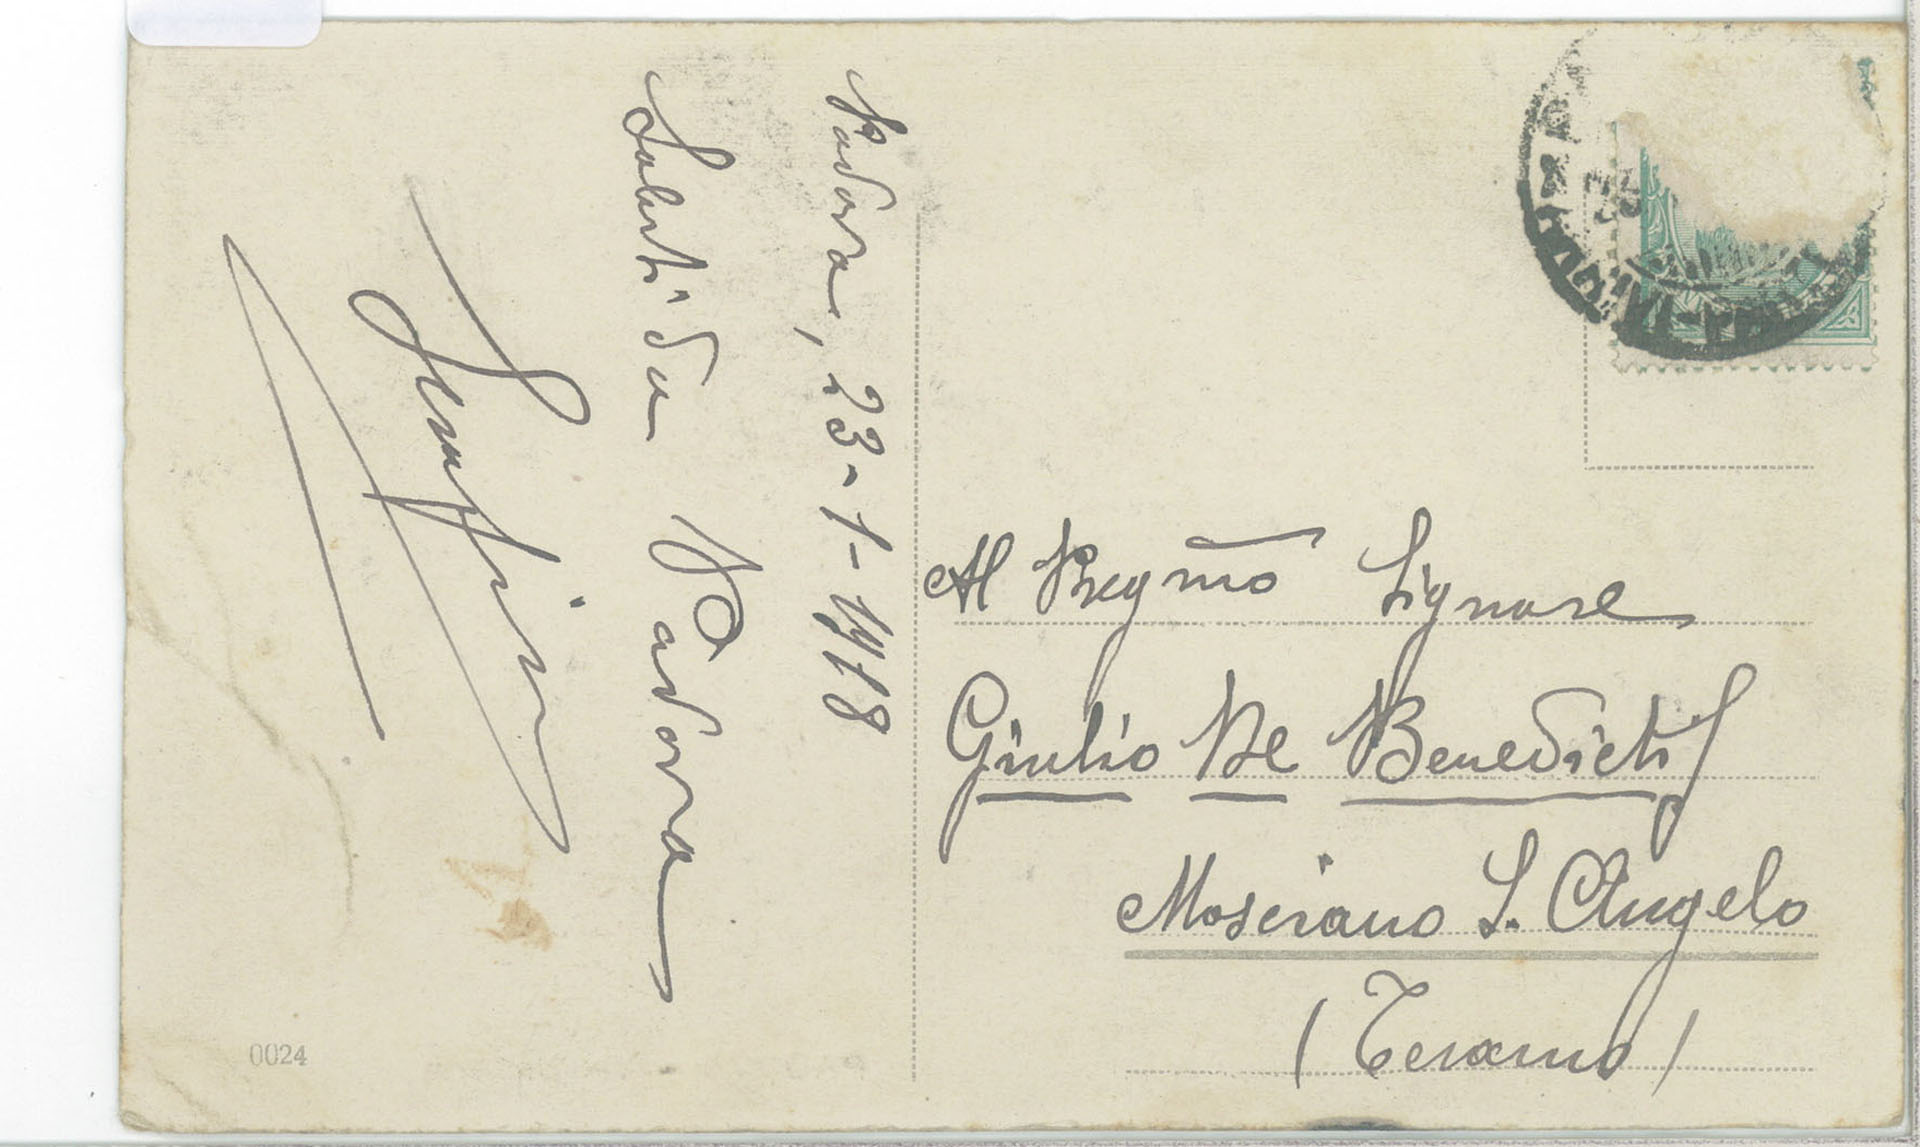 Padova, 23-1-1918
Saluti da Padova
Serafini
Al Pregmo Signore
Giulio De Benedictis
Mosciano S. Angelo
(Teramo)
0024